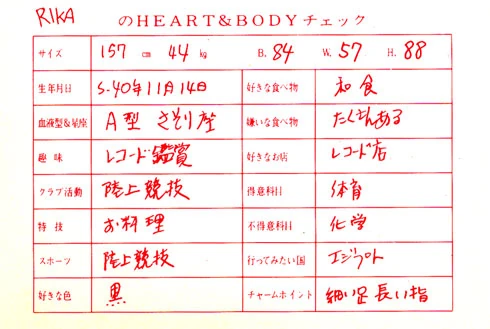 RIKA のHEART&BODYチェック
サイズ 157 cm 44 kg B. 84 W. 57 H. 88
生年月日 S-40年11月14日 好きな食べ物 和食
血液型&星座 A型 さそり座 嫌いな食べ物 たくさんある
趣味 レコード鑑賞 好きなお店 レコード店
クラブ活動 陸上競技 得意科目 体育
特技 お料理 不得意科目 化学
スポーツ 陸上競技 行ってみたい国 エジプト
好きな色 黒 チャームポイント 細い足 長い指